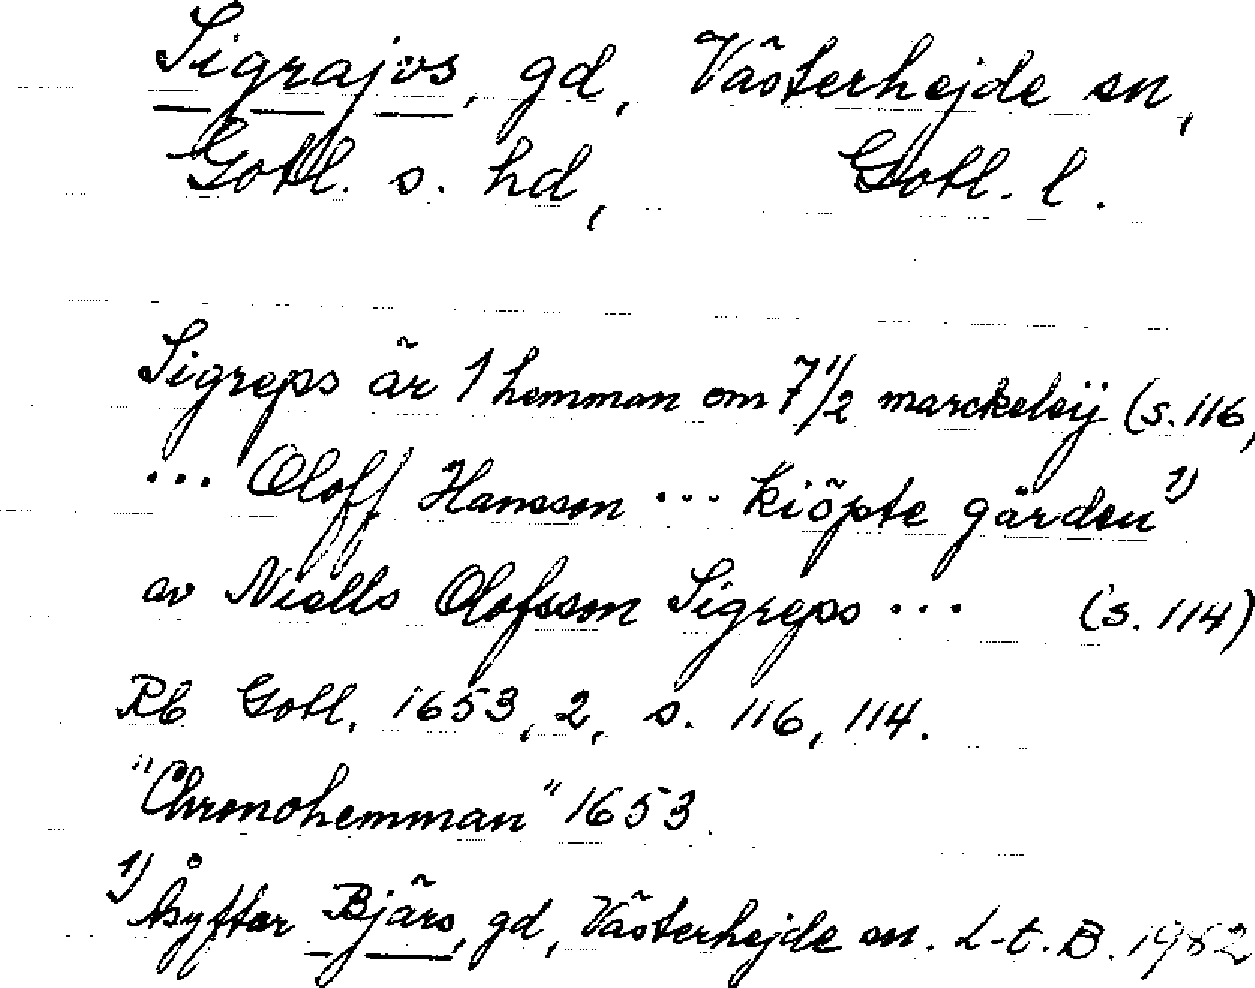 Sigrajvs, gd, Västerhejde sn,
Gotl. s. hd, Gotl. l.
Sigreps är 1 hemman om 7 1/2 marckeleij (s. 116,
... Oloff Hansson ... kiöpte gården 1)
av Niells Olofsson Sigreps ... (s. 114)
Rb Gotl. 1653, 2, s. 116, 114.
"Chronohemman" 1653.
1) Åsyftar Bjärs, gd, Västerhejde sn. L-t. B. 1982